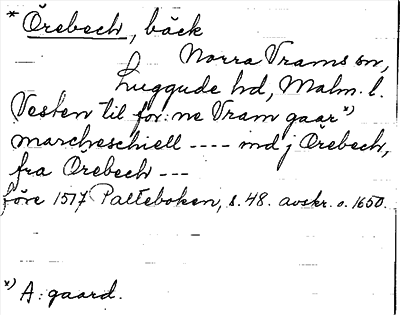 * Örebech, bäck
Norra Vrams sn,
Luggude hd, Malm. l.
Vesten til for:ne Vram gaar x)
marcheschiell ---- ind j Örebech,
fra Örebech ---
före 1517 Palteboken, s. 48. avskr. o. 1650.
x) A: gaard.